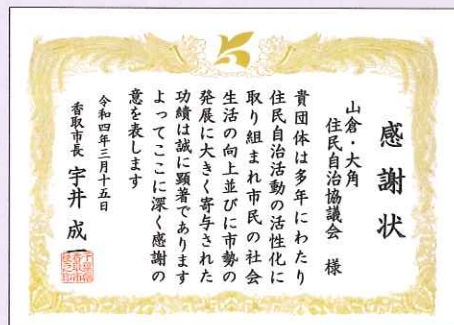 感謝状
山倉・大角
住民自治協議会 様
貴団体は多年にわたり
住民自治活動の活性化に
取り組まれ市民の社会
生活の向上並びに市勢の
発展に大きく寄与された
功績は誠に顕著であります
よってここに深く感謝の
意を表します
令和四年三月十五日
香取市長 宇井成一